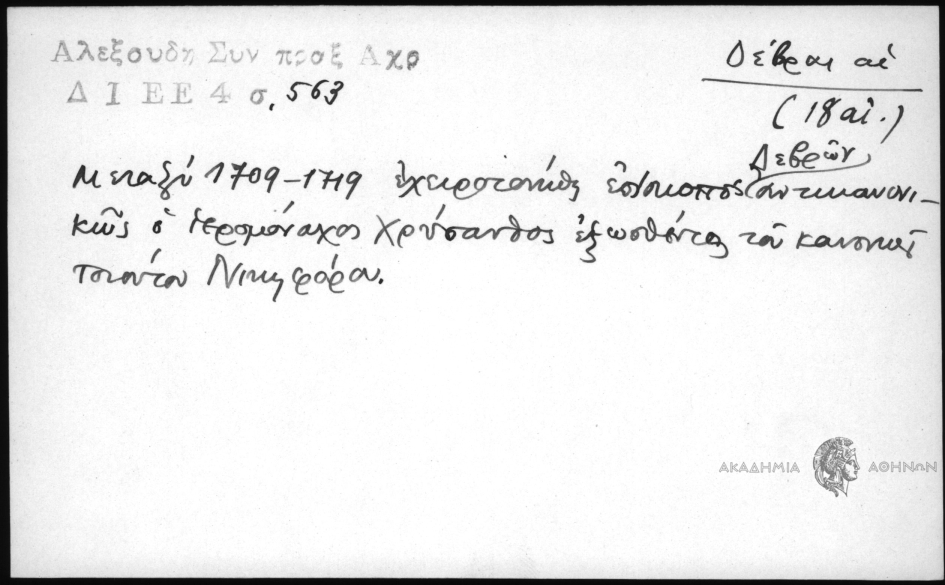 Αλεξουδη Συν πραξ Αχρ
Δ Ι Ε Ε 4 σ. 563
Δέβραι αἱ
(18 αἰ.)
Μεταξὺ 1709-1719 ἐχειροτονήθη ἐπίσκοπος Δεβρῶν ἀντικανονι-
κῶς ὁ ἱερομόναχος Χρύσανθος ἐξωσθέντος τοῦ κανονικοῦ
τοιούτου Νικηφόρου.
ΑΚΑΔΗΜΙΑ ΑΘΗΝΩΝ